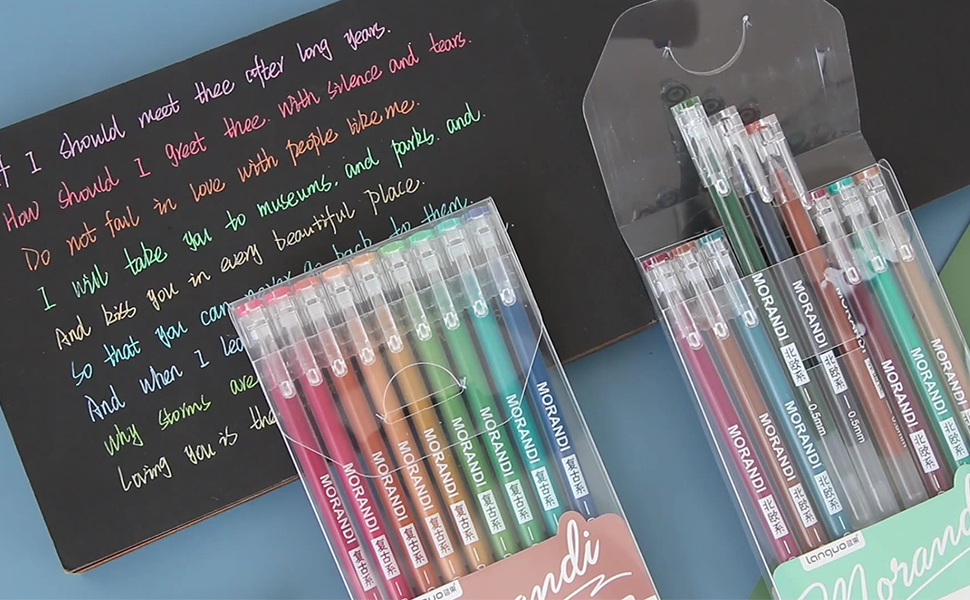 If I should meet thee after long years.
How should I greet thee. with silence and tears.
Do not fall in love with people like me.
I will take you to museums. and parks. and.
And kiss you in every beautiful place.
So that you can never go back to them.
And when I lea
Why storms are
Loving you is the
MORANDI 复古系
MORANDI 复古系
MORANDI 复古系
MORANDI 复古系
MORANDI 复古系
MORANDI 复古系
MORANDI 复古系
MORANDI 复古系
MORANDI 复古系
MORANDI 北欧系
MORANDI 北欧系
MORANDI 北欧系
MORANDI 北欧系 0.5mm
MORANDI 北欧系 0.5mm
MORANDI 北欧系
MORANDI 北欧系
MORANDI 北欧系
languo
Morandi